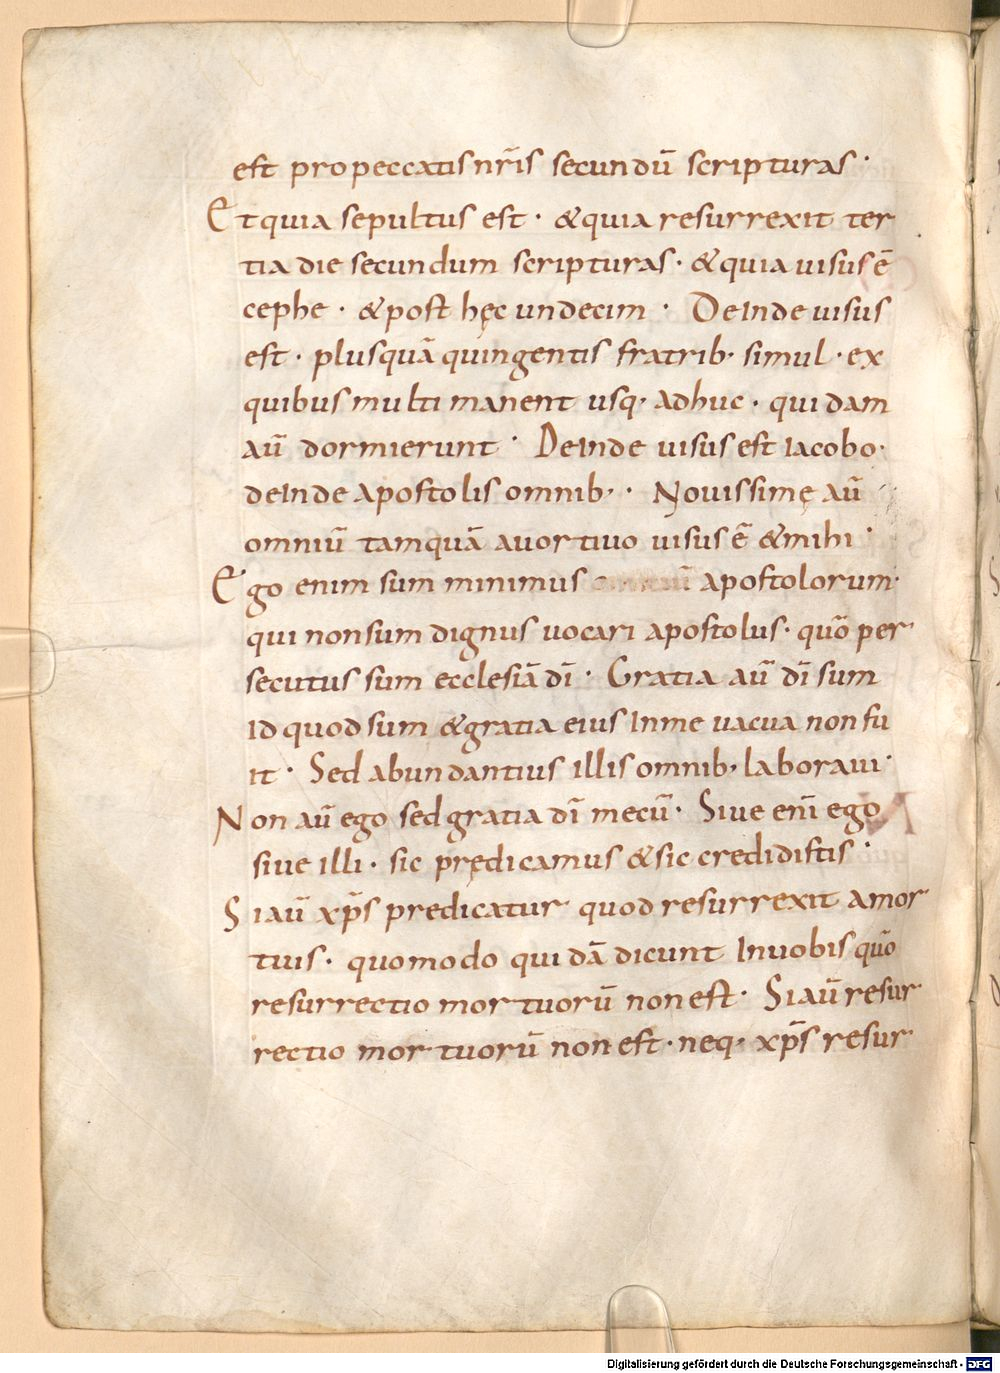 est pro peccatis nr̄is secundū scripturas ·
Et quia sepultus est · & quia resurrexit ter
tia die secundum scripturas · & quia uisus ē
cephe · & post hęc undecim · Deinde uisus
est · plusquā quingentis fratrib· simul · ex
quibus multi manent usq· adhuc · quidam
aū dormierunt · Deinde uisus est iacobo ·
deinde apostolis omnib· · Nouissime aū
omniū tamquā auortiuo uisus ē & mihi ·
Ego enim sum minimus apostolorum ·
qui non sum dignus uocari apostolus · quō per
secutus sum ecclesiā dī · Gratia aū dī sum
id quod sum & gratia eius in me uacua non fu
it · Sed abundantius illis omnib· laboraui ·
Non aū ego sed gratia dī mecū · Siue enī ego
siue illi · sic prędicamus & sic credidistis ·
Si aū xp̄s predicatur quod resurrexit amor
tuis · quomodo quidā dicunt in uobis quō
resurrectio mortuorū non est · Si aū resur
rectio mortuorū non est · neq· xp̄s resur
Digitalisierung gefördert durch die Deutsche Forschungsgemeinschaft - DFG